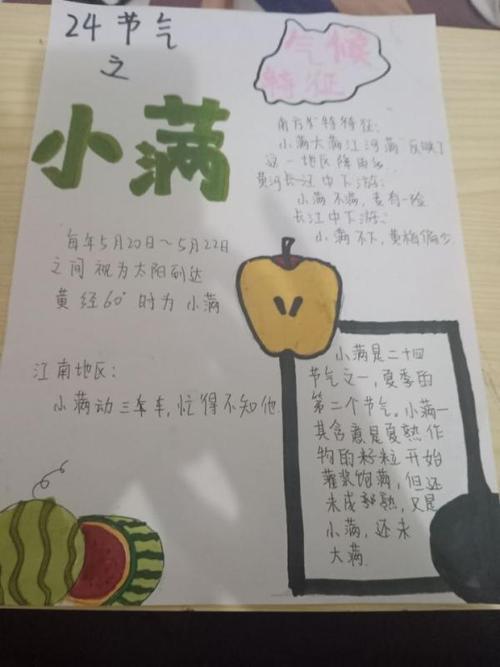 24节气
之
小满
气候
特征
南方的特征:
小满大满江河满 反映了
这一地区降雨多
黄河长江中下游:
小满不满,麦有一险
长江中下游:
小满不下,黄梅偏少
每年5月20日~5月22日
之间 视为太阳到达
黄经60°时为小满
江南地区:
小满动三车车,忙得不知他.
小满是二十四
节气之一,夏季的
第二个节气。小满一
其含意是夏熟作
物的籽粒开始
灌浆饱满,但还
未成熟,又是
小满,还未
大满.